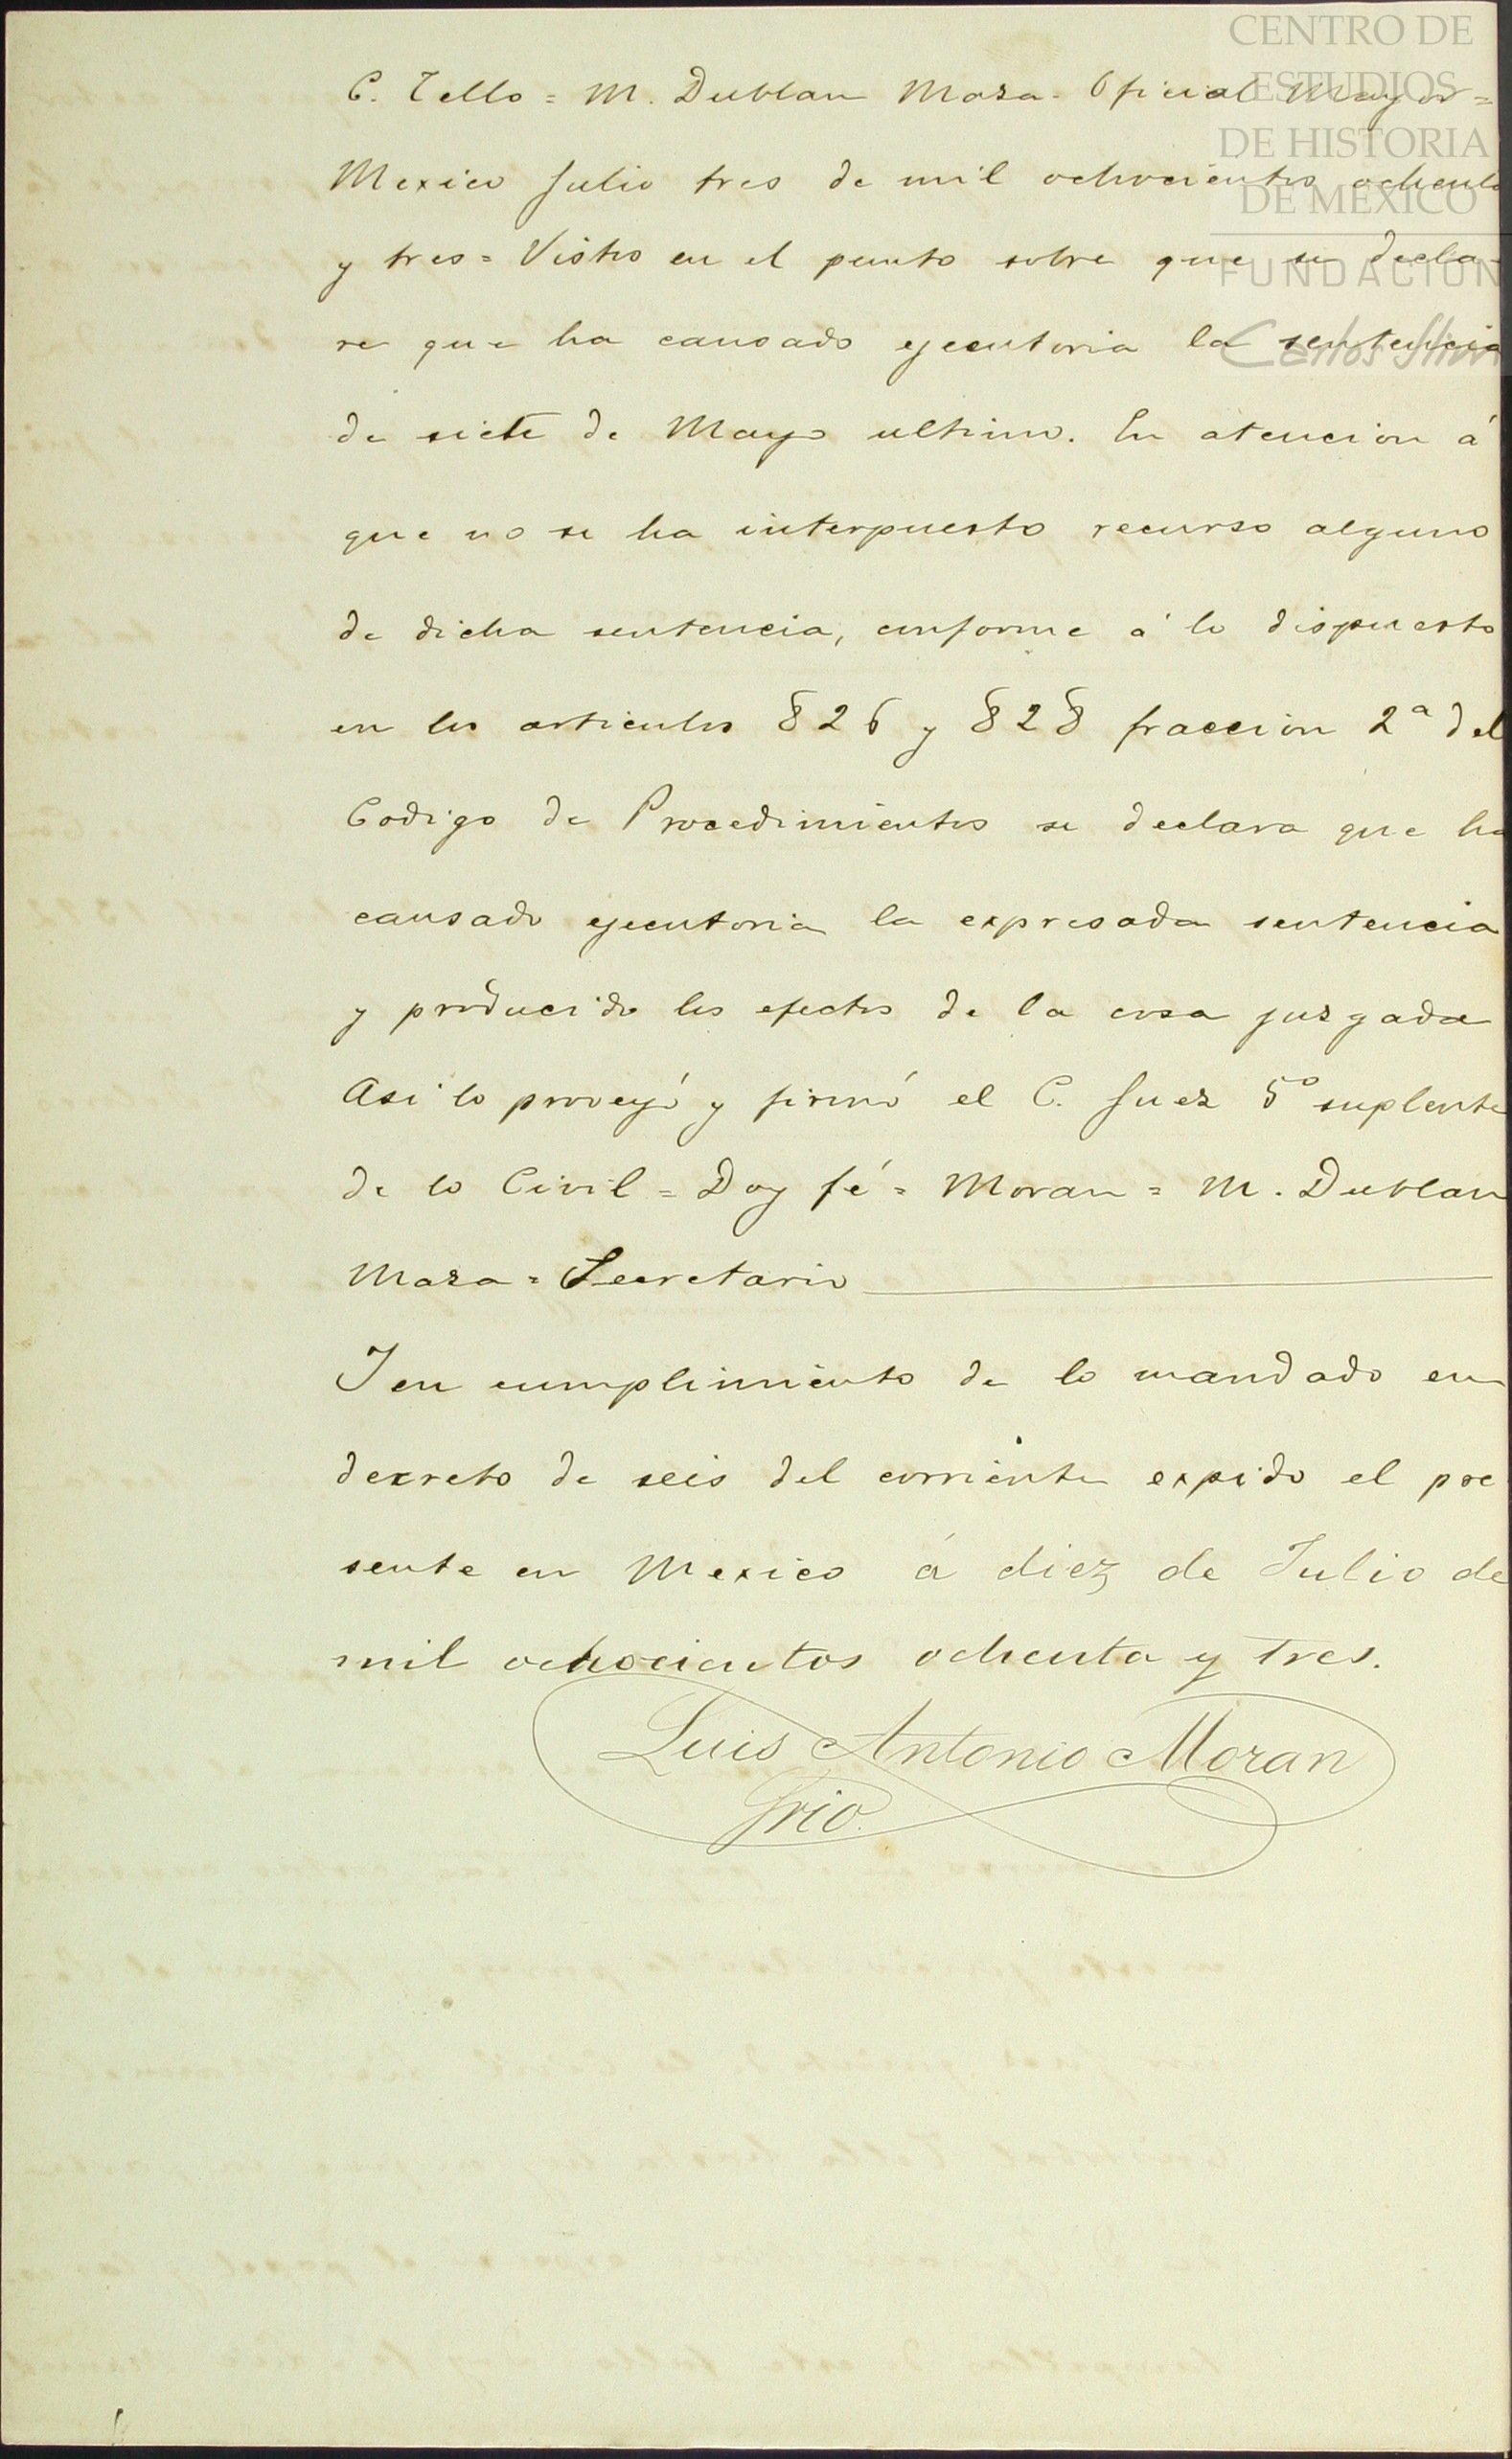 CENTRO DE
ESTUDIOS
DE HISTORIA
DE MEXICO
FUNDACION
Carlos Slim
C. Tello = M. Dublan Maza. Oficial Mayor =
Mexico Julio tres de mil ochocientos ochenta
y tres = Visto en el punto sobre que se decla-
re que ha causado ejecutoria la sentencia
de siete de Mayo ultimo. En atencion á
que no se ha interpuesto recurso alguno
de dicha sentencia, conforme á lo dispuesto
en los articulos 826 y 828 fraccion 2ª del
Codigo de Procedimientos se declara que ha
causado ejecutoria la expresada sentencia
y producido los efectos de la cosa juzgada
Asi lo proveyó y firmó el C. Juez 5º suplente
de lo Civil = Doy fé = Moran = M. Dublan
Maza = Secretario
I en cumplimiento de lo mandado en
decreto de seis del corriente expido el pre
sente en Mexico á diez de Julio de
mil ochocientos ochenta y tres.
Luis Antonio Moran
Srio.